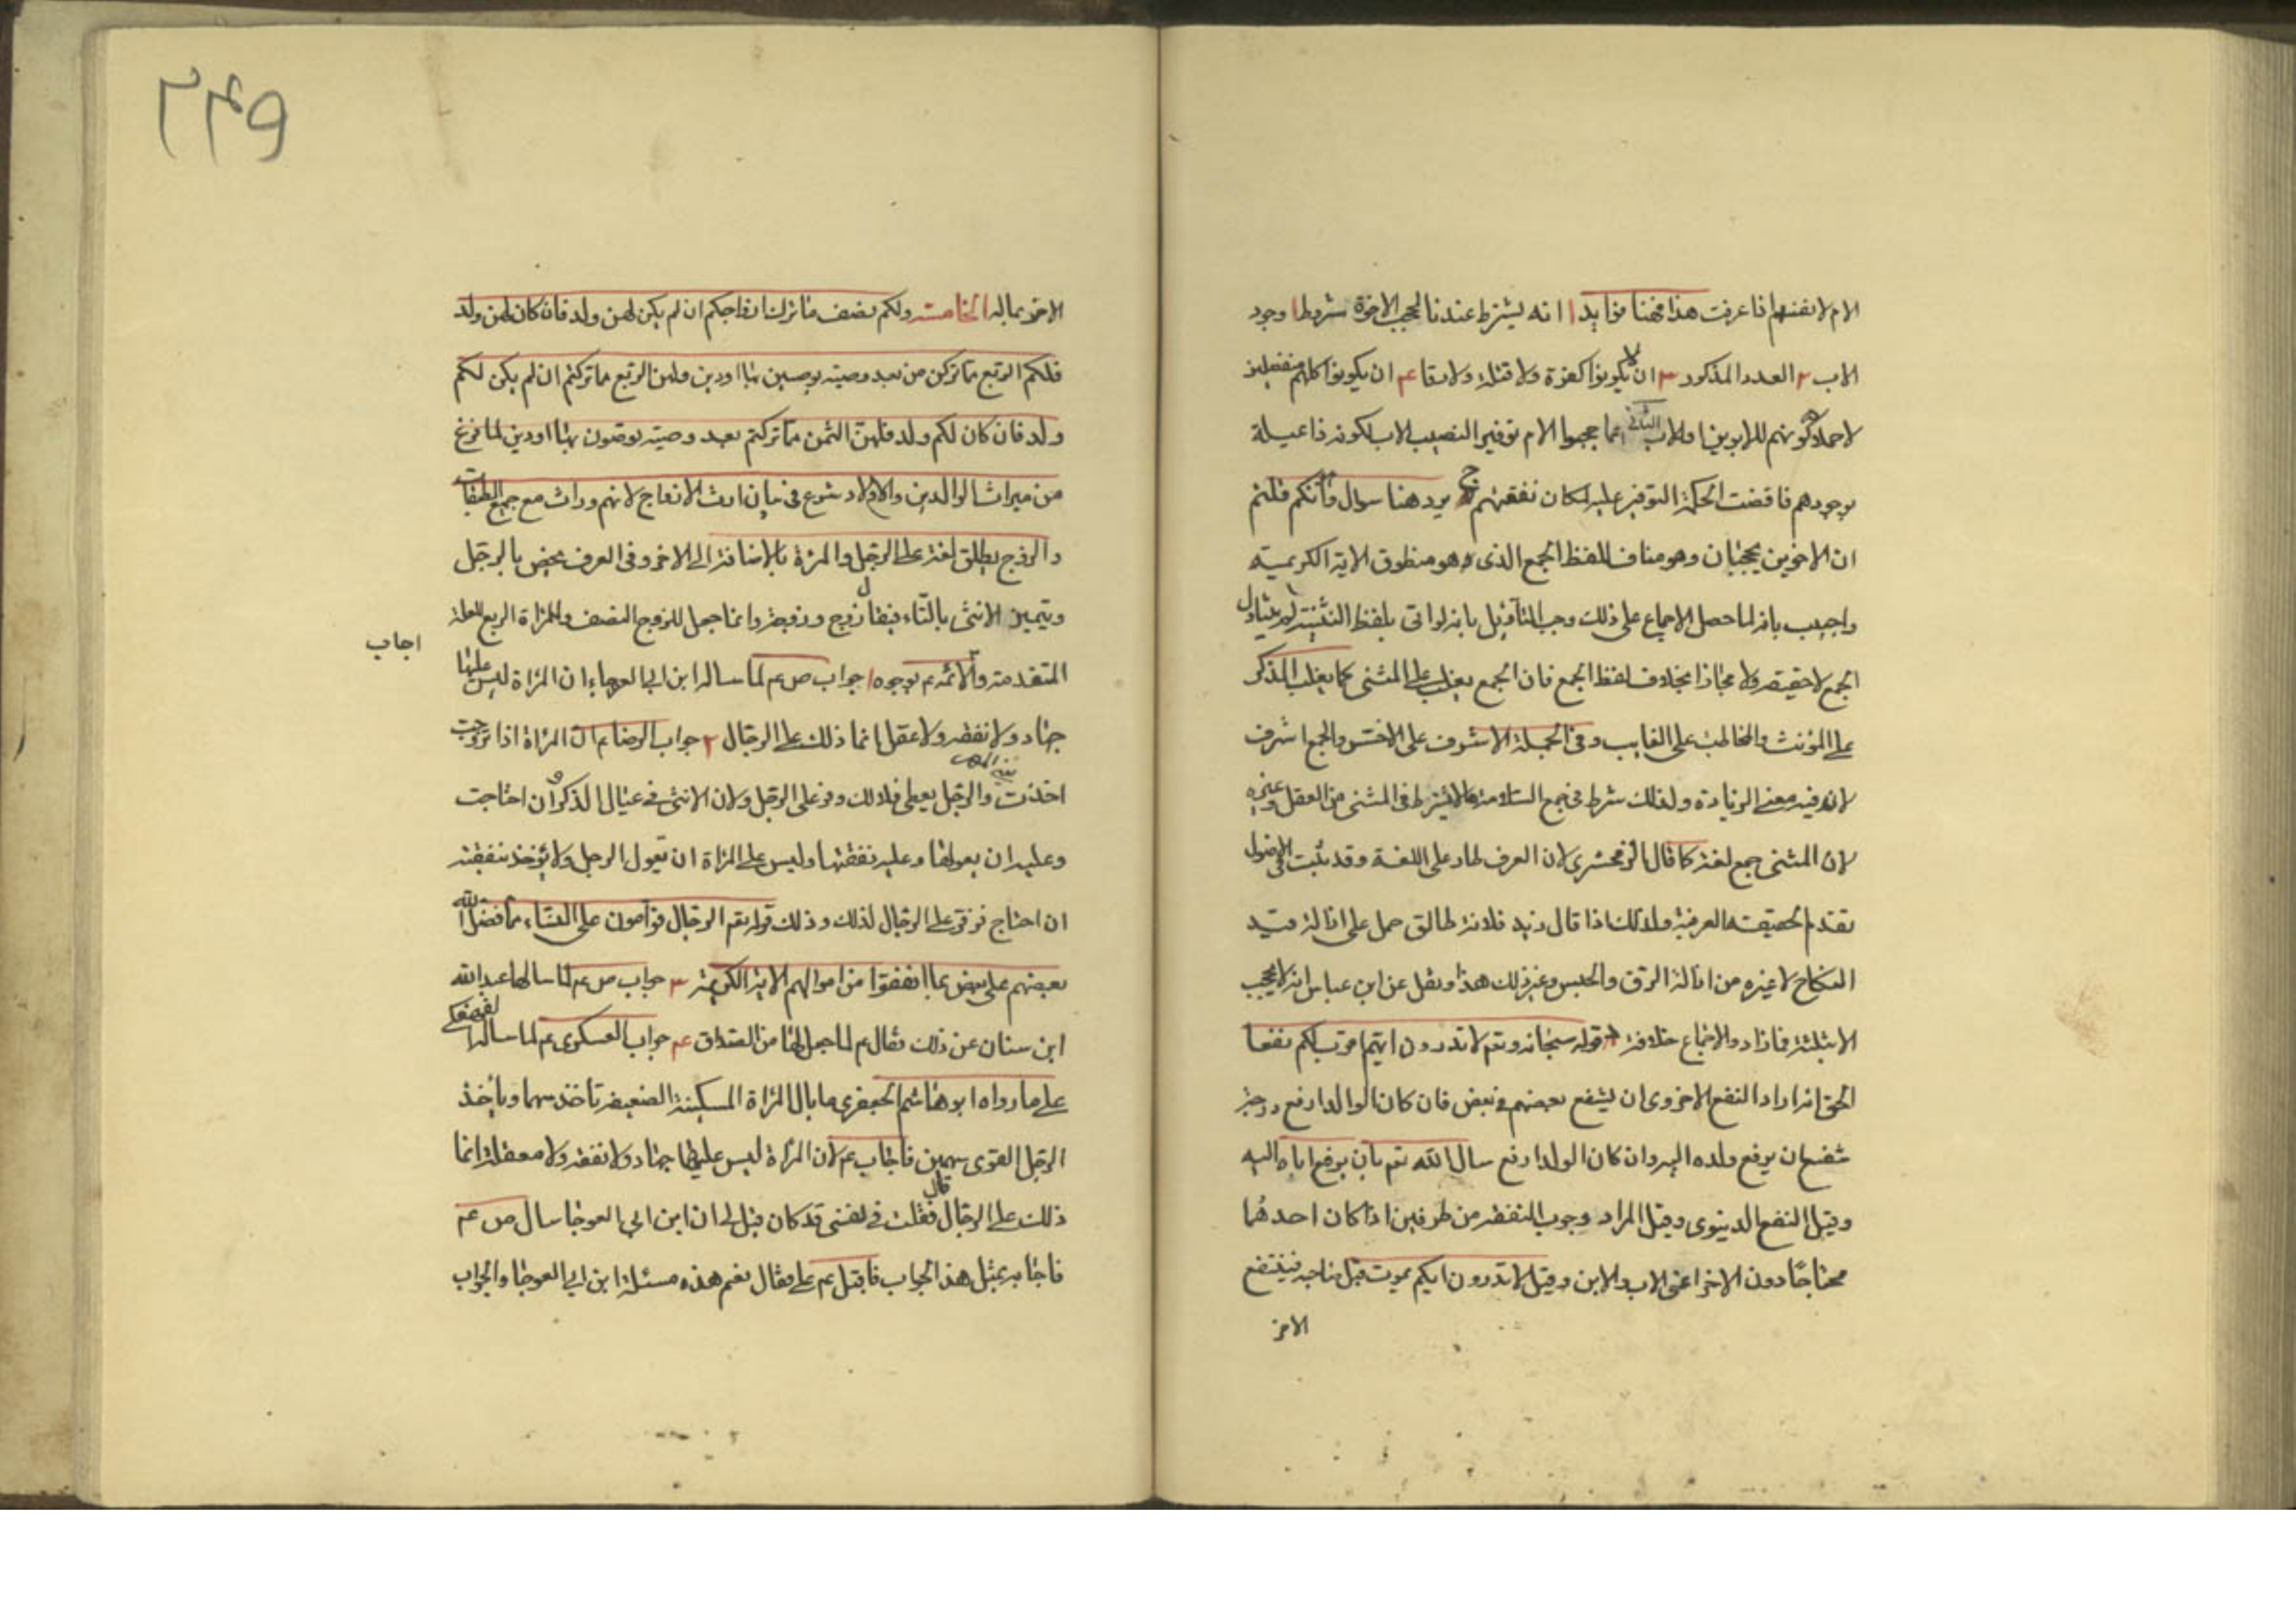 الام لانفسهم اذا عرفت هذا فهنا فوايد ا انه يشترط عندنا لحجب الاخوة شروط ا وجود
الاب ٢ العدد المذكور ٣ ان لا يكونوا كفرة ولا قتلة ولا رقا عم ان يكونوا كلهم منفصلين
لاحملا ه كونهم للابوين او للاب الثاني انما حجبوا الام توفير النصيب الاب لكونه ذا عيلة
بوجودهم فاقضت الحكمة التوفير عليه لمكان نفقتهم ج يرد هنا سوال وانكم قلتم
ان الاخوين يحجبان وهو مناف للفظ الجمع الذى هو منطوق الاية الكريمة
واجيب بانه لما حصل الاجماع على ذلك وجب التأويل بانه لو اتى بلفظ التثنية لم يتناول
الجمع لا حقيقة ولا مجازا بخلاف لفظ الجمع فان الجمع يغلب على المثنى كما يغلب المذكر
على المؤنث والمخاطب على الغايب وفى الجملة الاشرف على الاخس والجمع اشرف
لان فيه معنى الزيادة ولذلك شرط فى جمع السلامة ما لا يشترط فى المثنى من العقل وغيره
لان المثنى جمع لغة كما قال الزمخشرى لان العرف طار على اللغة وقد ثبت فى الاصول
تقدم الحقيقة العرفية ولذلك اذا قال زيد فلانة طالق حمل على ازالة قيد
النكاح لا غيره من ازالة الرق والحبس وغير ذلك هذا ونقل عن ابن عباس انه لا يحجب
الا بثلثة فما زاد والاجماع خلافه قوله سبحانه وتعم لا تدرون ايهم اقرب لكم نفعا
الحق انه اراد النفع الاخروى ان يشفع بعضهم فى بعض فان كان الوالد ارفع درجة
شفع ان يرفع ولده اليه وان كان الولد ارفع سال الله تعم بان يرفع اباه اليه
وقيل النفع الدنيوى وقيل المراد وجوب النفقة من طرفين اذا كان احدهما
محتاجا دون الاخر اعنى الاب والابن وقيل لا تدرون ايكم يموت قبل صاحبه فينتفع
الاخر
٢٤٩
الاخر بماله الخامسة ولكم نصف ما ترك ازواجكم ان لم يكن لهن ولد فان كان لهن ولد
فلكم الربع مما تركن من بعد وصية يوصين بها او دين ولهن الربع مما تركتم ان لم يكن لكم
ولد فان كان لكم ولد فلهن الثمن مما تركتم بعد وصية توصون بها او دين لما فرغ
من ميراث الوالدين والاولاد شرع فى بيان ارث الازواج لانهم وراث مع جميع الطبقات
والزوج يطلق لغة على الرجل والمرئة بالاضافة الى الاخر وفى العرف يخص بالرجل
ويتميز الانثى بالتاء فيقال زوج وزوجة وانما جعل للزوج النصف وللمراة الربع للعلة
اجاب
المتقدمة وللائمة عم بوجوه ا جواب ص عم لما ساله ابن ابى العوجاء ان المراة ليس عليها
جهاد ولا نفقة ولا عقل انما ذلك على الرجال ٢ جواب الرضا عم ان المراة اذا تزوجت
اخذت والرجل يعطى فلذلك وفر على الرجل ولان الانثى فى عيال الذكر ان احتاجت
وعليه ان يعولها وعليه نفقتها وليس على المراة ان تعول الرجل ولا يؤخذ بنفقته
ان احتاج فوفر على الرجال لذلك وذلك قوله تعم الرجال قوامون على النساء بما فضل الله
بعضهم على بعض بما انفقوا من اموالهم الاية الكريمة ٣ جواب ص عم لما ساله عبد الله
ابن سنان عن ذلك فقال عم لما جعل لها من الصداق عم جواب العسكرى عم لما ساله
على ما رواه ابو هاشم الجعفرى ما بال المراة المسكينة الضعيفة تاخذ سهما وياخذ
الرجل القوى سهمين فاجاب عم لان المراة ليس عليها جهاد ولا نفقة ولا معقلة انما
ذلك على الرجال قال فقلت فى نفسى قد كان قيل لى ان ابن ابى العوجا سال ص عم
فاجابه بمثل هذا الجواب فاقبل عم على فقال نعم هذه مسئلة ابن ابى العوجا والجواب